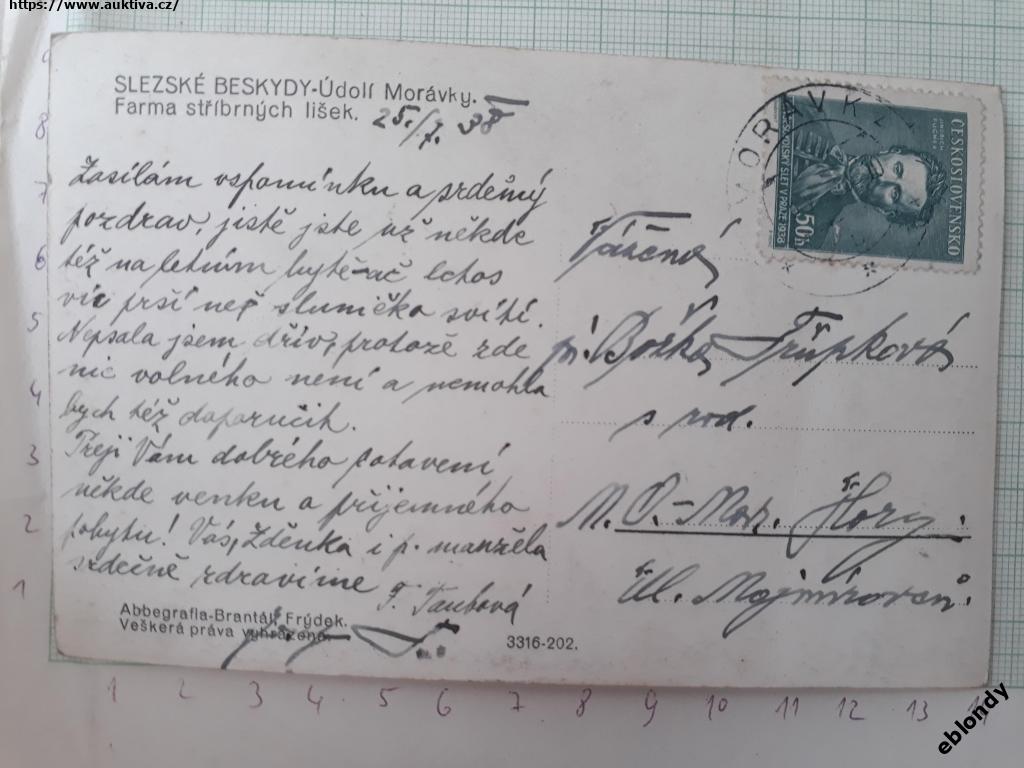 https://www.auktiva.cz/
SLEZSKÉ BESKYDY-Údolí Morávky.
Farma stříbrných lišek. 25./7. 38
Zasílám vzpomínku a srdečný
pozdrav, jistě jste už někde
též na letním bytě - ač letos
víc prší než sluníčko svítí.
Nepsala jsem dřív, protože zde
nic volného není a nemohla
bych též doporučit.
Přeji Vám dobrého zotavení
někde venku a příjemného
pobytu! Vás, Zdenka i p. manžela
srdečně zdravíme
F. Taubová
Abbegrafia-Branták, Frýdek.
Veškerá práva vyhrazena.
3316-202.
MORÁVKA
ČESKOSLOVENSKO
JINDŘICH FÜGNER
VŠESOKOLSKÝ SLET V PRAZE 1938
50h
Vážená
pí. Božka Trupková
s rod.
M. O.-Mar. Hory.
Ul. Mojmírovců.
8
7
6
5
4
3
2
1
1 2 3 4 5 6 7 8 9 10 11 12 13
eblondy